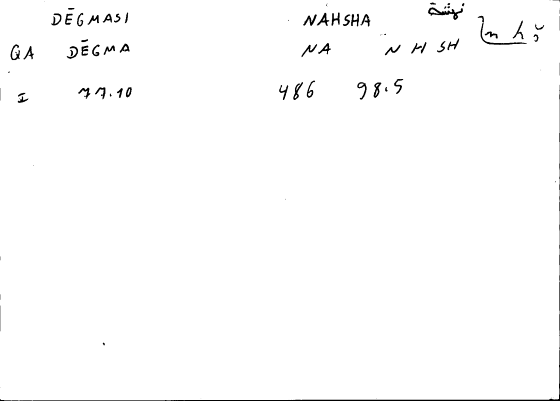 DĒGMASI NAHSHA نهشة n h š
QA DĒGMA NA N H SH
I 77.10 486 98.5